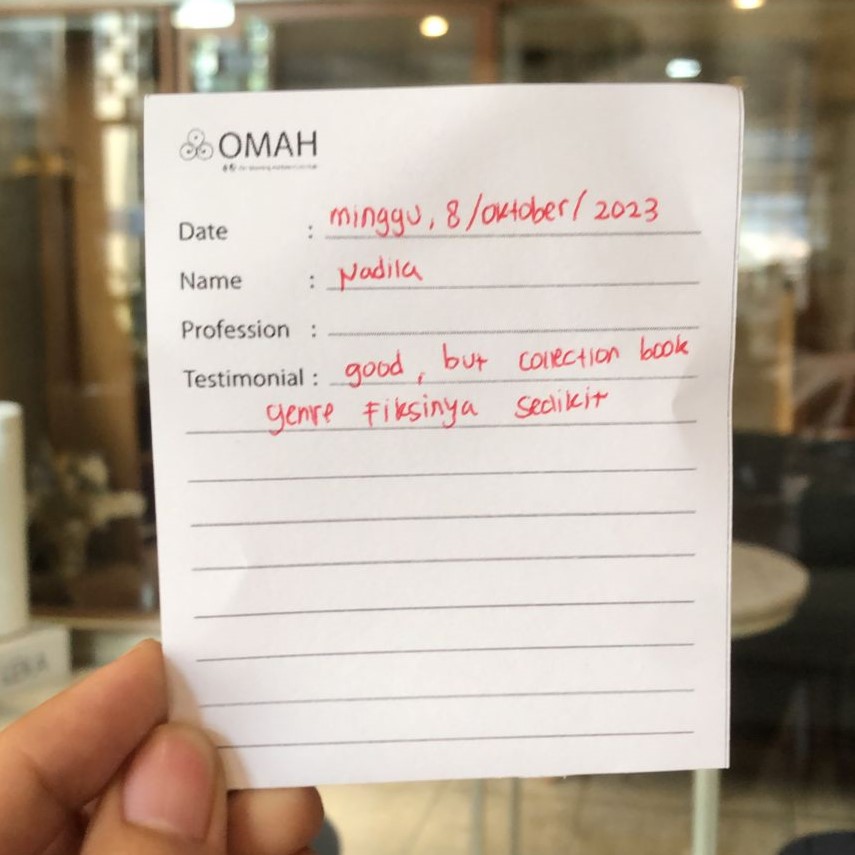 OMAH
Date : minggu, 8/oktober/2023
Name : Nadila
Profession :
Testimonial : good, but collection book
genre Fiksinya sedikit